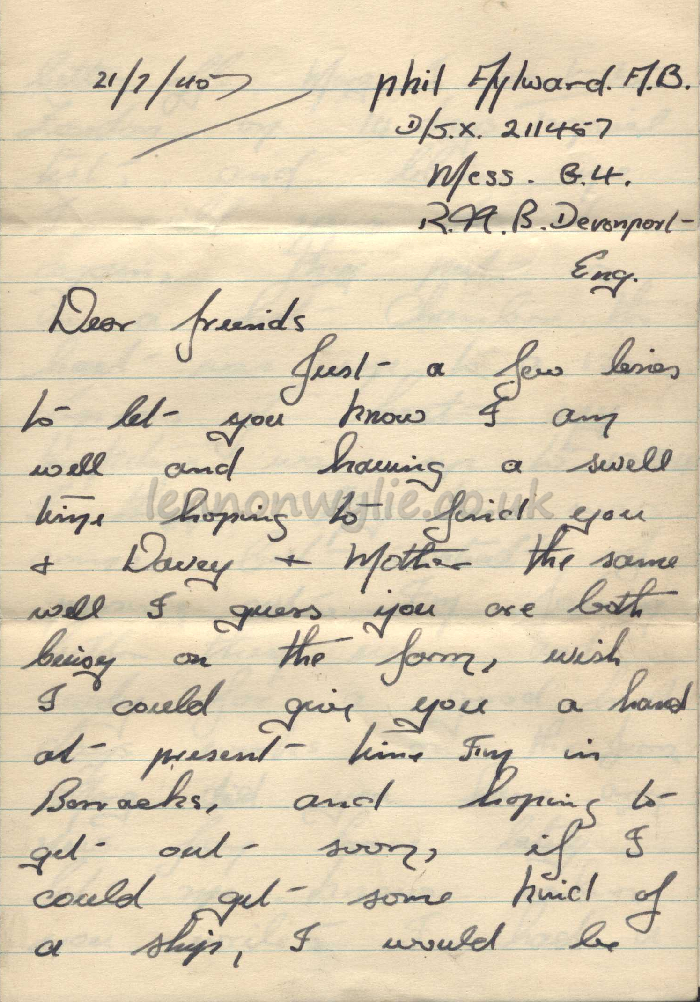 21/7/40
Phil Aylward. A/B.
D/S.X. 211457
Mess. G.4.
R.N.B. Devonport
Eng.
Dear freinds
Just a few lines
to let you know I am
well and having a swell
time hoping to find you
& Davey & Mother the same
well I guess you are both
buisy on the farm, wish
I could give you a hand
at present time I'm in
Barracks, and hoping to
get out soon, if I
could get some kind of
a ship, I would be
lennonwylie.co.uk